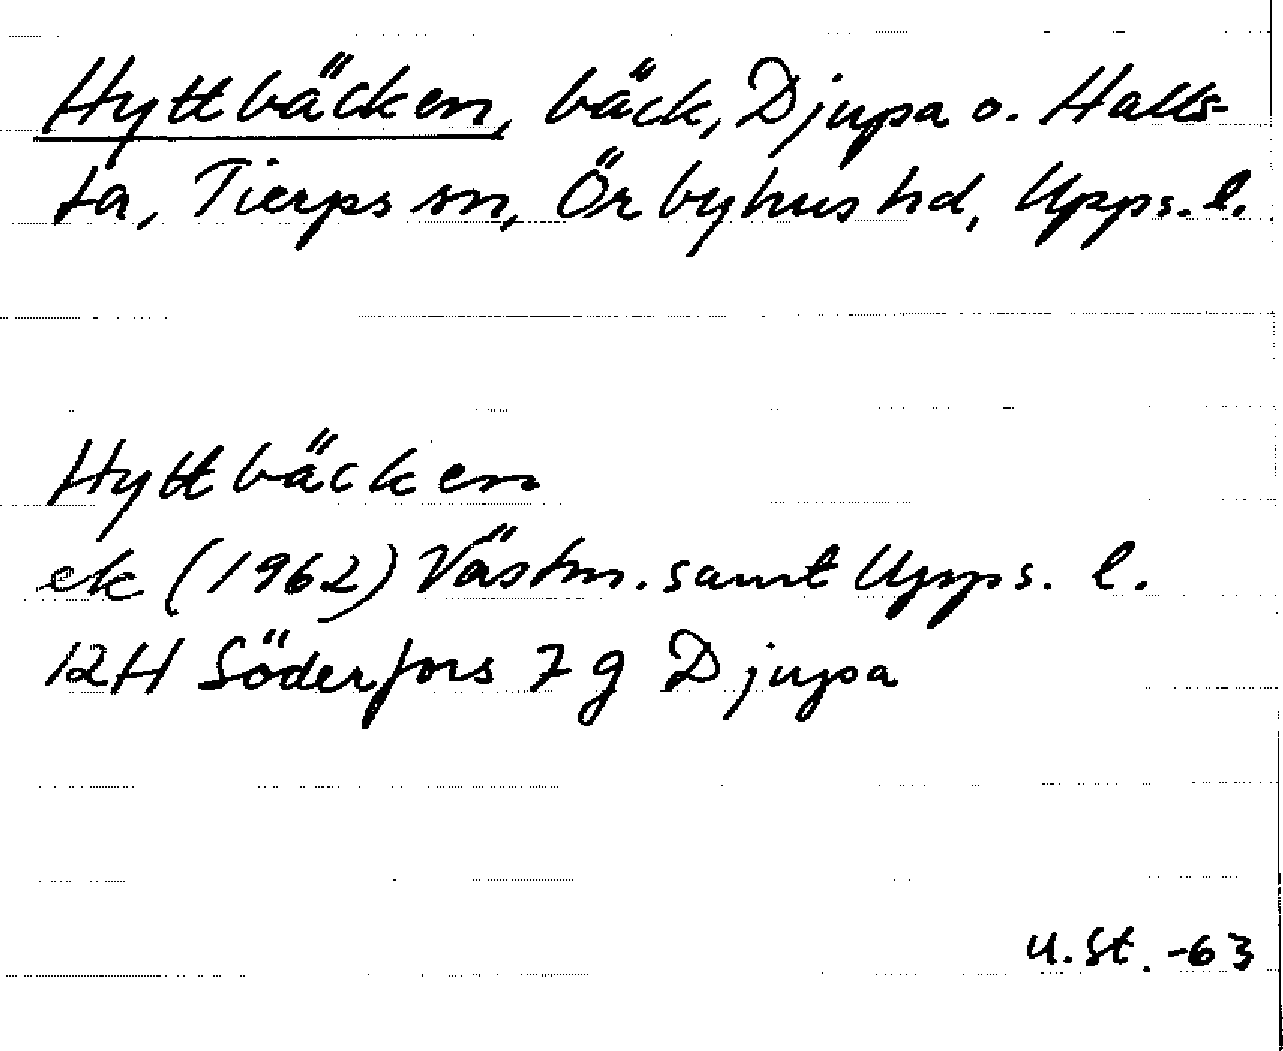 Hyttbäcken, bäck, Djupa o. Halls-
ta, Tierps sn, Örbyhus hd, Upps. l.
Hyttbäcken
ek (1962) Västm. samt Upps. l.
12H Söderfors 7 g Djupa
U.St. -63